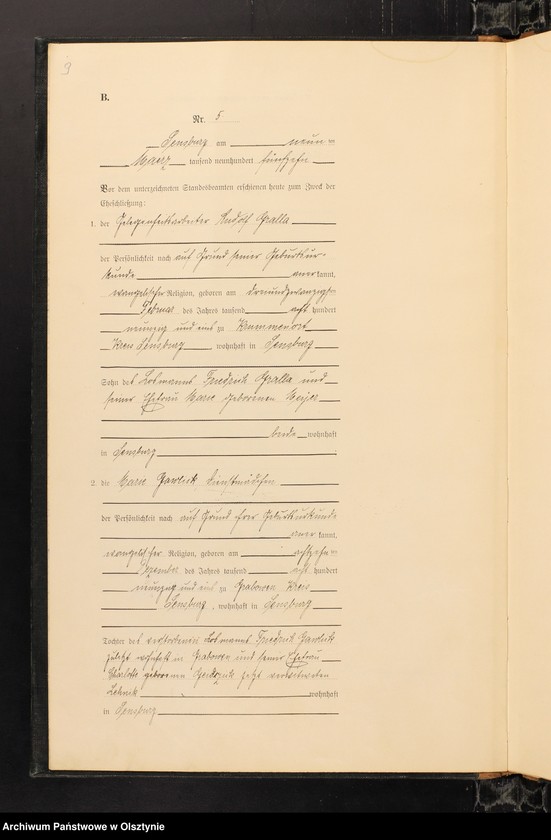 9
B.
Nr. 5
Sensburg am neun-
Maerz tausend neunhundert fünfzehn
Vor dem unterzeichneten Standesbeamten erschienen heute zum Zweck der
Eheschließung:
1. der Gelegenheitsarbeiter Rudolf Gralla
der Persönlichkeit nach auf Grund seiner Geburtsur-
kunde anerkannt,
evangelischer Religion, geboren am dreiundzwanzigst
Februar des Jahres tausend acht hundert
neunzig und eins zu Krummenort
Kreis Sensburg, wohnhaft in Sensburg
Sohn des Losmanns Friedrich Gralla und
seiner Ehefrau Marie geborenen
beide wohnhaft
in Sensburg
2. die Marie Dienstmädchen
der Persönlichkeit nach auf Grund ihrer Geburtsurkunde
anerkannt,
evangelischer Religion, geboren am achtzehn-
Dezember des Jahres tausend acht hundert
neunzig und eins zu Grabowen Kreis
Sensburg, wohnhaft in Sensburg
Tochter des verstorbenen Losmanns Friedrich
zuletzt wohnhaft in Grabowen und seiner Ehefrau
Charlotte geborenen jetzt verwitweten
wohnhaft
in Sensburg
Archiwum Państwowe w Olsztynie